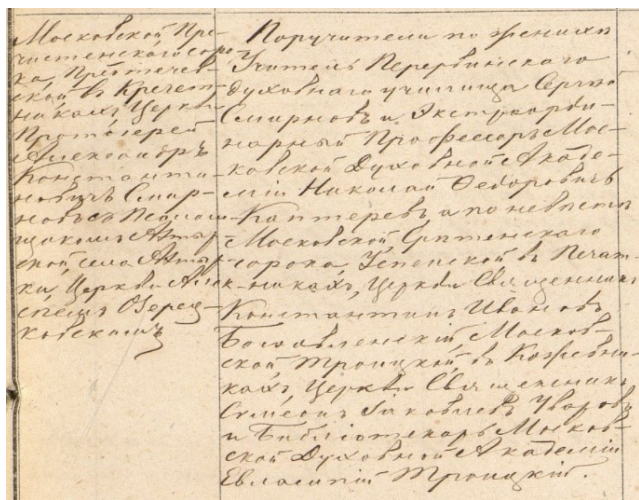 Московской Пре-
чистенскаго соро-
ка, Предтечев-
ской въ Кречет-
никахъ, Церкви
Протоіерей
Александръ
Константи-
новичъ Смир-
новъ съ Псалом-
щикомъ Ахтыр-
ской, села Ахтыр-
ки, Церкви Але-
ксѣемъ Озерец-
ковскимъ
Поручители по женихѣ
Учитель Перервинскаго
духовнаго училища Сергѣй
Смирновъ и Экстраорди-
нарный Профессоръ Мос-
ковской Духовной Акаде-
міи Николай Ѳедоровичъ
Каптеревъ, а по невѣстѣ
Московской Срѣтенскаго
сорока, Успенской въ Печат-
никахъ, Церкви Священникъ
Константинъ Ивановъ
Богоявленскій Москов-
ской Троицкой, въ Кожевни-
кахъ, Церкви Священникъ
Симеонъ Іаковлевъ Уваровъ
и Библіотекарь Москов-
ской Духовной Академіи
Евлампій Троицкій.